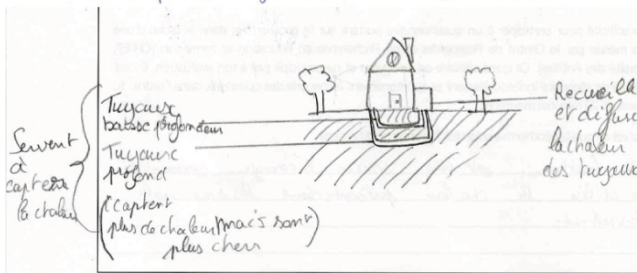 Servent
à
capter
la chaleur
Tuyaux
basse profondeur
Tuyaux
profond
(captent
plus de chaleur mais sont
plus chers)
Recueille
et diffuse
la chaleur
des tuyaux